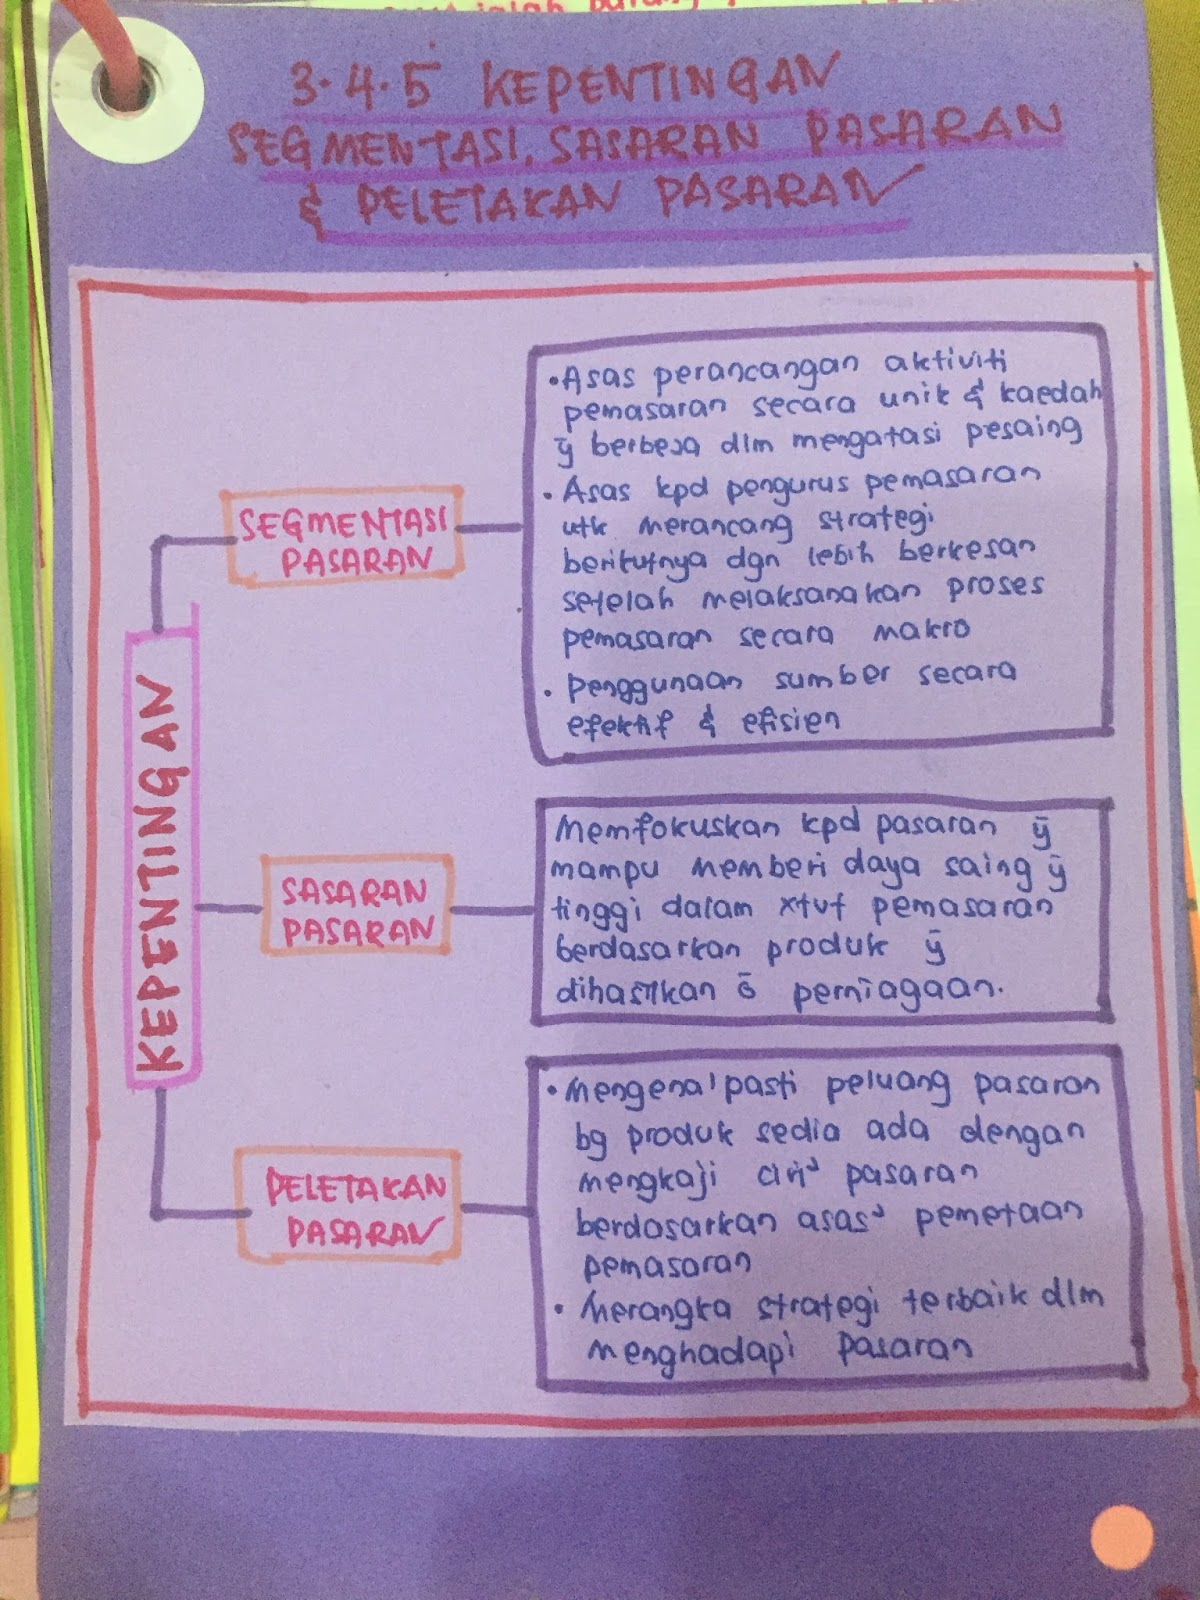 3.4.5 KEPENTINGAN
SEGMENTASI, SASARAN PASARAN
& PELETAKAN PASARAN
KEPENTINGAN
SEGMENTASI
PASARAN
• Asas perancangan aktiviti
pemasaran secara unik & kaedah
ȳ berbeza dlm mengatasi pesaing
• Asas kpd pengurus pemasaran
utk merancang strategi
berikutnya dgn lebih berkesan
setelah melaksanakan proses
pemasaran secara makro
• penggunaan sumber secara
efektif & efisien
SASARAN
PASARAN
Memfokuskan kpd pasaran ȳ
mampu memberi daya saing ȳ
tinggi dalam xtvt pemasaran
berdasarkan produk ȳ
dihasilkan ō perniagaan.
PELETAKAN
PASARAN
• Mengenalpasti peluang pasaran
bg produk sedia ada dengan
mengkaji ciri² pasaran
berdasarkan asas² pemetaan
pemasaran
• Merangka strategi terbaik dlm
menghadapi pasaran